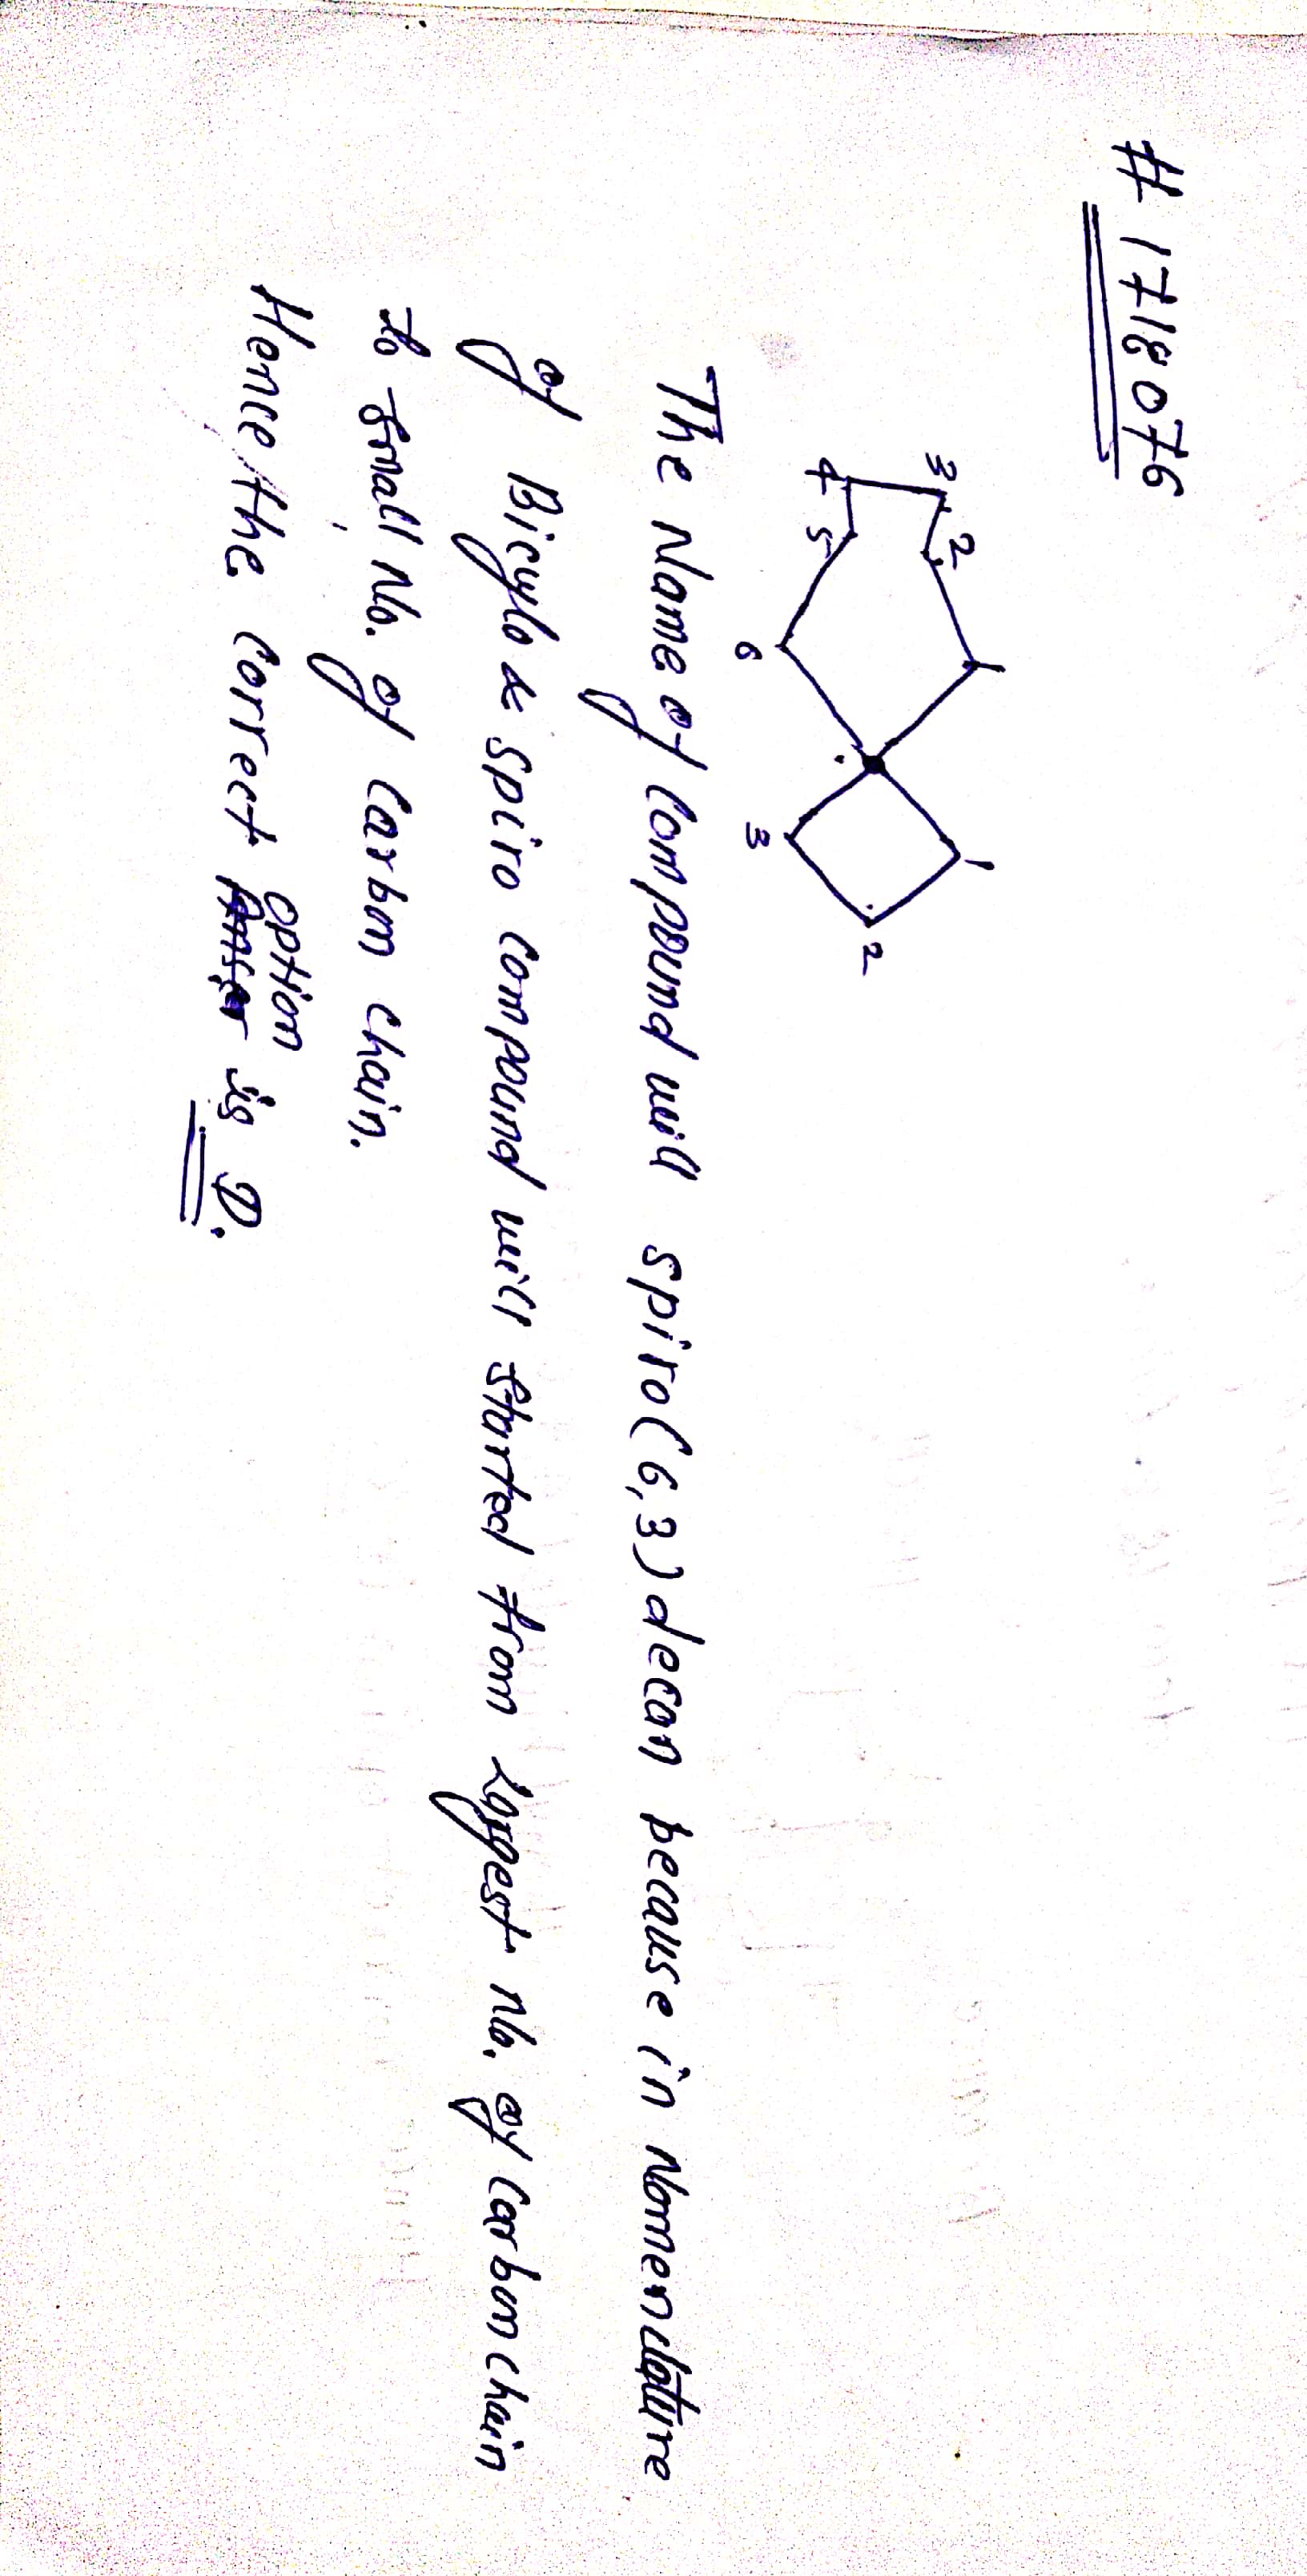 # 1718076
1
2
3
4
5
6
1
2
3
The Name of Compound will Spiro (6,3) decan because in Nomenclature
of Bicyclo & Spiro Compound will Started from Largest No. of Carbon chain
to Small No. of Carbon chain.
Hence the Correct option is D.